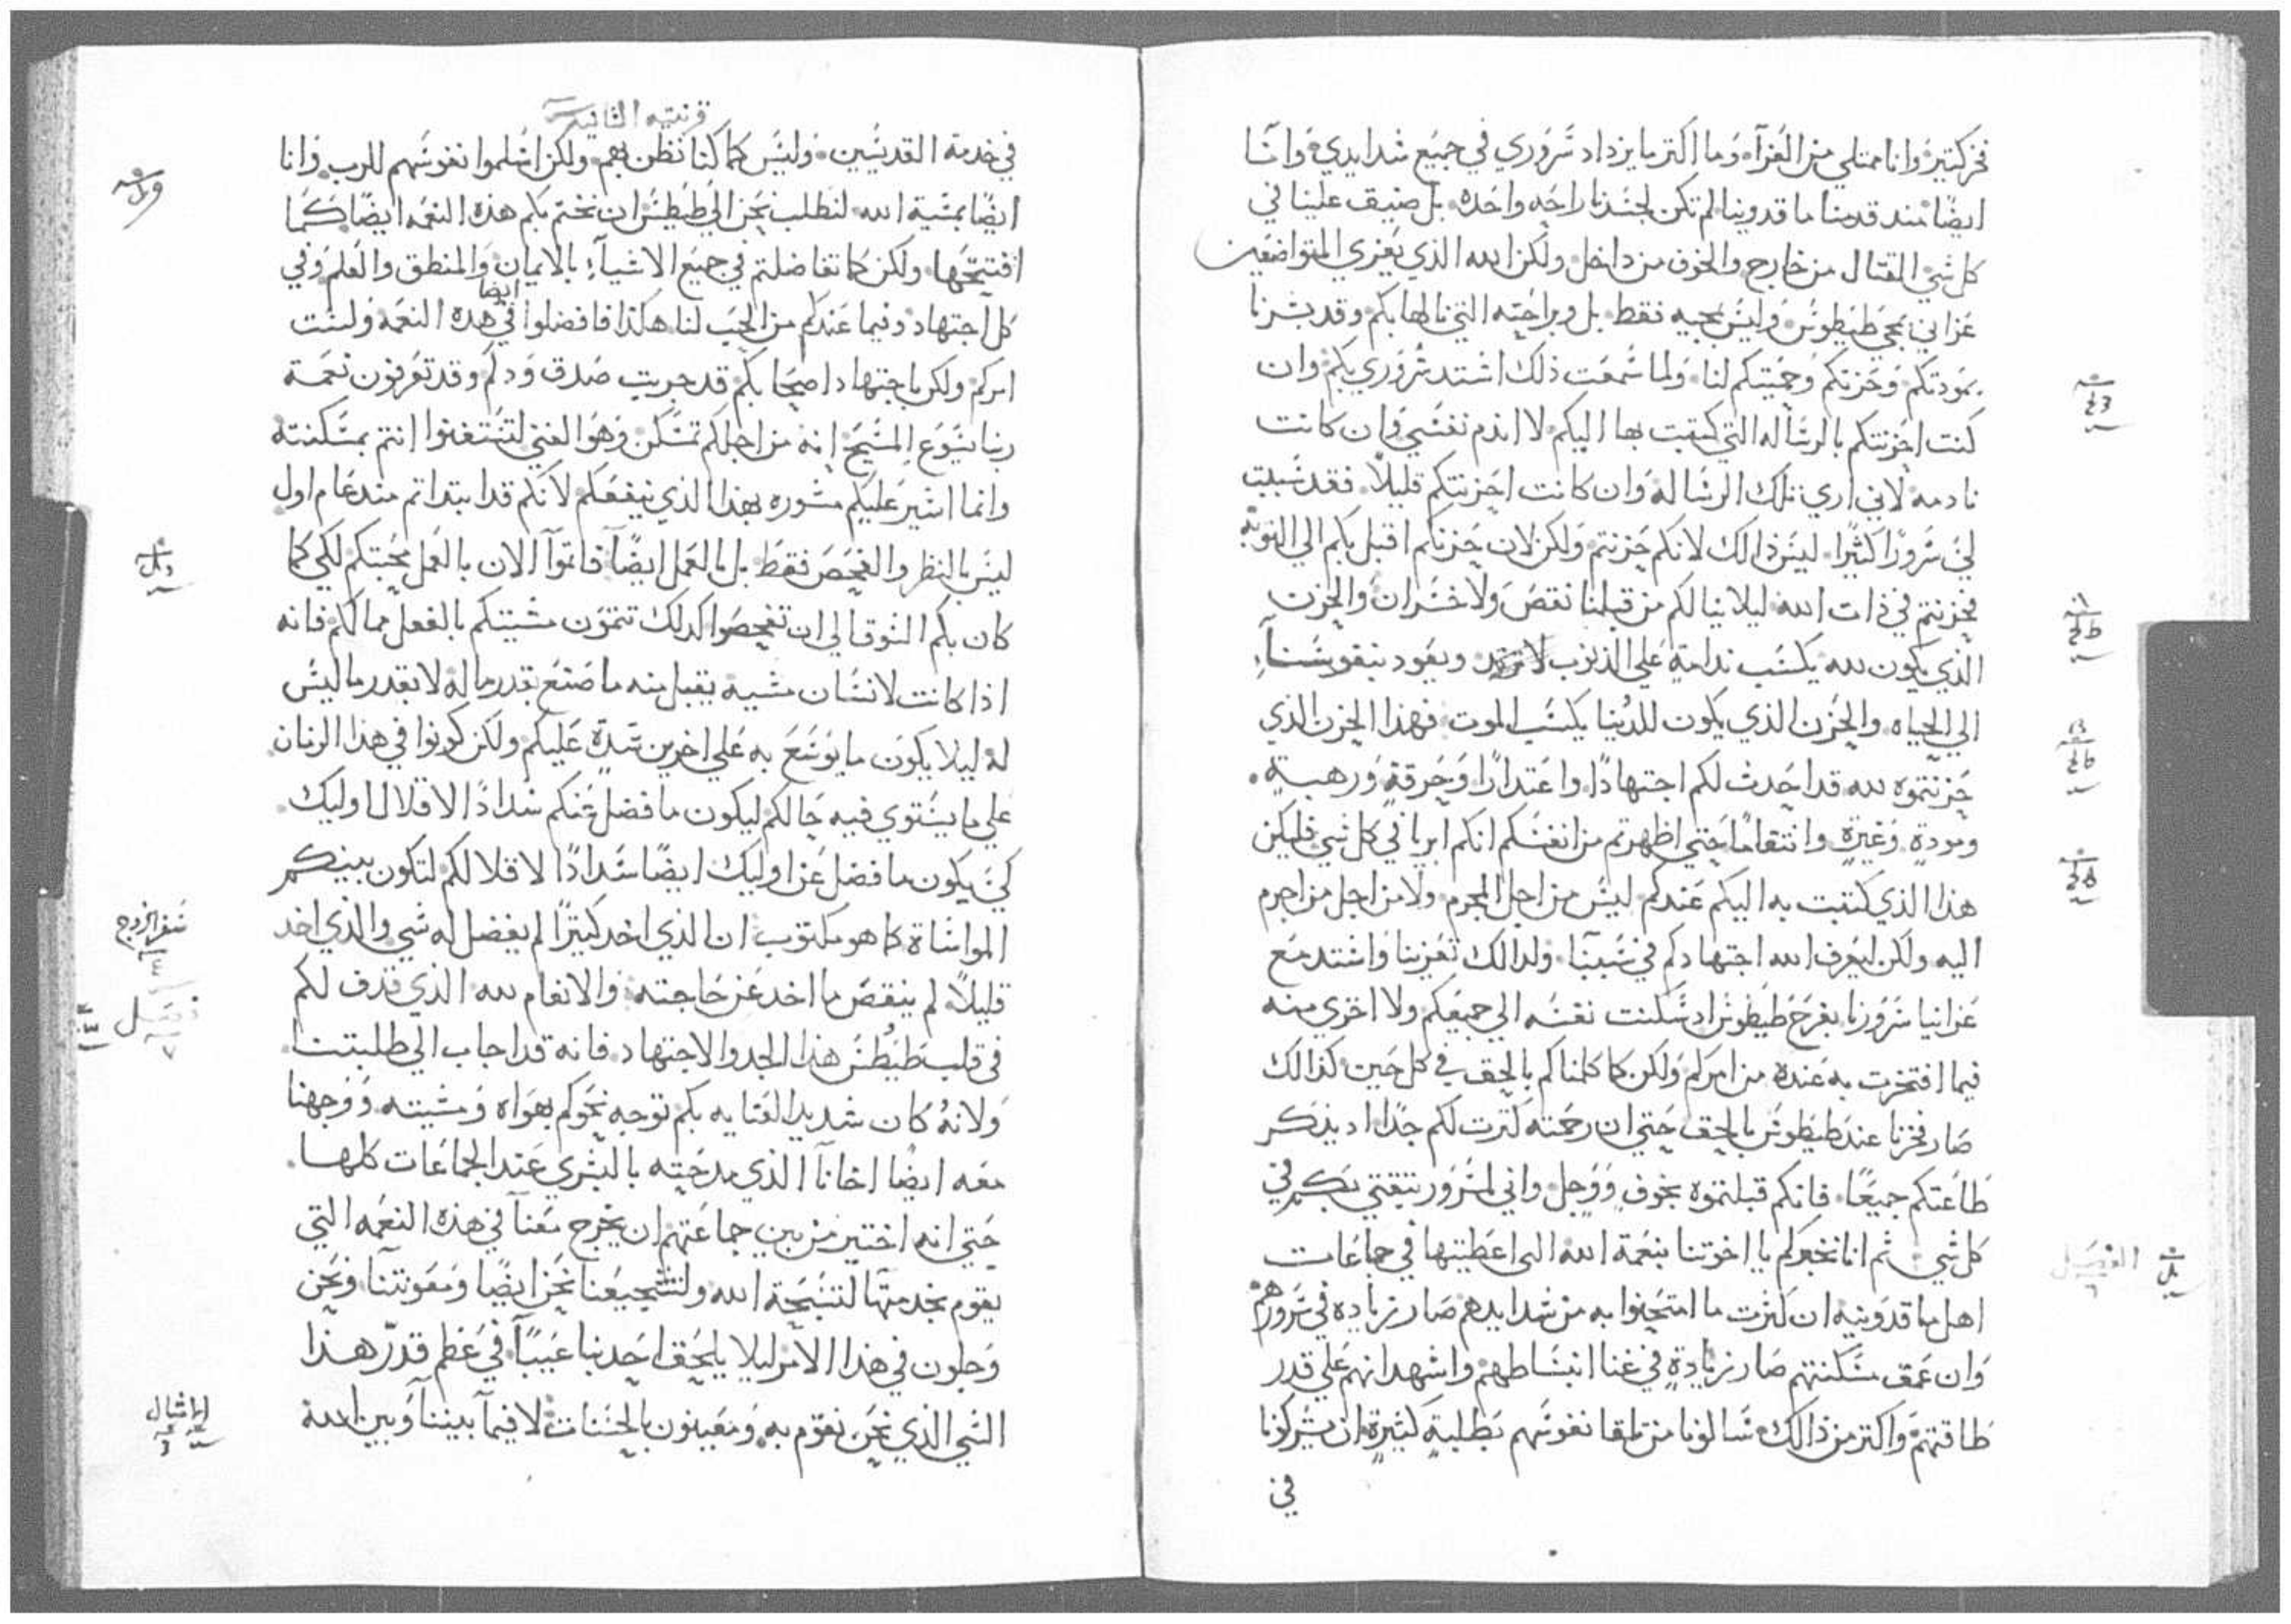 فخر كتير وانا ممتلي من العزآ وما اكتر ما يزداد سروري في جميع شدايدي وانا
ايضًا مند قدمنا ماقدونيا لم تكن لجسدنا راحه واحده بل ضيق علينا في
كل شي القتال من خارج والخوف من داخل ولكن الله الذي يعزي المتواضعين
عزاني بمجي طيطوس وليس بمجيه فقط بل وبراحته التي نالها بكم وقد بشرنا
بمودتكم وحزنكم وحميتكم لنا ولما سمعت ذلك اشتد سروري بكم وان
كنت احزنتكم بالرساله التي كتبت بها اليكم لا اندم نفسي وان كانت
نادمه لاني اري تلك الرساله وان كانت احزنتكم قليلاً فقد سببت
لي سرورًا كثيرًا ليس ذالك لانكم حزنتم ولكن لان حزنكم اقبل بكم الي التوبة
فحزنتم في ذات الله ليلا ينالكم من قبلنا نقص ولا خسران والحزن
الذي يكون لله يكسب ندامة علي الذنوب لا ترتد ويعود بنفوسنآ
الي الحياه والحزن الذي يكون للدنيا يكسب الموت فهذا الحزن الذي
حزنتموه لله قد احدث لكم اجتهادًا واعتدارًا وحرقة ورهبة
ومودة وغيرة وانتقامًا حتي اظهرتم من انفسكم انكم ابريا في كل شي فليكن
هذا الذي كتبت به اليكم عندكم ليس من اجل المجرم ولا من اجل من اجرم
اليه ولكن ليعرف الله اجتهادكم في سببنا ولدالك تعزينا واشتد مع
عزانيا سرورنا بفرح طيطوس اد سكنت نفسه الي جميعكم ولا اخزي منه
فيما افتخرت به عنده من امركم ولكن كما كلمناكم بالحق في كل حين كذالك
صار فخرنا عند طيطوس بالحق حتي ان رحمته كترت لكم جدًا اد يذكر
طاعتكم جميعًا فانكم قبلتموه بخوف ووجل واني لمسرور بتقتي بكم في
كل شي ثم انا نخبركم يا اخوتنا بنعمة الله التي اعطيتها في جماعات
الفصل ٦
اهل ماقدونيه ان كترت ما امتحنوا به من شدايدهم صار زياده في سرورهم
وان عمق مسكنتهم صار زيادة في غنا انبساطهم واشهد انهم علي قدر
طاقتهم واكتر من ذالك سالونا من تلقا نفوسهم بطلبة كثيرة ان يشركونا
في
قرنتيه الثانيه
في خدمة القديسين وليس كما كنا نظن بهم ولكن اسلموا نفوسهم للرب وانا
ايضًا بمشية الله لنطلب نحن الي طيطس ان يختم بكم هذه النعمه ايضًا كما
افتتحها ولكن كما تفاضلتم في جميع الاشيآء بالايمان والمنطق والعلم وفي
كل اجتهاد وفيما عندكم من الحب لنا هكذا فافضلوا ايضا في هده النعمه ولست
امركم ولكن باجتهاد اصحابكم قد جربت صدق ودكم وقد تعرفون نعمة
ربنا يسوع المسيح انه من اجلكم تمسكن وهو الغني لتستغنوا انتم بمسكنته
وانما اشير عليكم مشوره بهذا الذي ينفعكم لانكم قد ابتداتم مند عام اول
ليس بالنظر والفحص فقط بل بالعمل ايضًا فاتموآ الان بالعمل محبتكم لكي كما
كان بكم الشوق الي ان تفحصوا كدلك تتمون مشيتكم بالفعل مما لكم فانه
اذا كانت لانسان مشية يقبل منه ما صنع بقدر ما له لا بقدر ما ليس
له ليلا يكون ما يوسع به علي اخرين شدة عليكم ولكن كونوا في هذا الزمان
علي ما يستوي فيه حالكم ليكون ما فضل عنكم سدادًا لاقلال اوليك
كي يكون ما فضل عن اوليك ايضًا سدادًا لاقلالكم لتكون بينكم
المواساة كما هو مكتوب ان الذي اخد كتيرًا لم يفضل له شي والذي اخد
سفر الخروج
قليلاً لم ينقص ما اخد عن حاجته والانعام لله الذي قدف لكم
فصل ٧
في قلب طيطس هذا الجد والاجتهاد فانه قد اجاب الي طلبتنا
ولانه كان شديد العنايه بكم توجه نحوكم بهواه ومشيته ووجهنا
معه ايضًا اخانآ الذي مدحته بالبشري عند الجماعات كلها
حتي انه اختير من بين جماعتهم ان يخرج معنآ في هذه النعمه التي
يقوم بخدمتها لتسبحة الله ولتشجيعنا نحن ايضًا ومعونتنا ونحن
وجلون في هذا الامر ليلا يلحق احد بنا عيبًا في عظم قدر هذا
الشي الذي نحن نقوم به ومعينون بالحسنات لا فيمآ بيننآ وبين الله
امثال